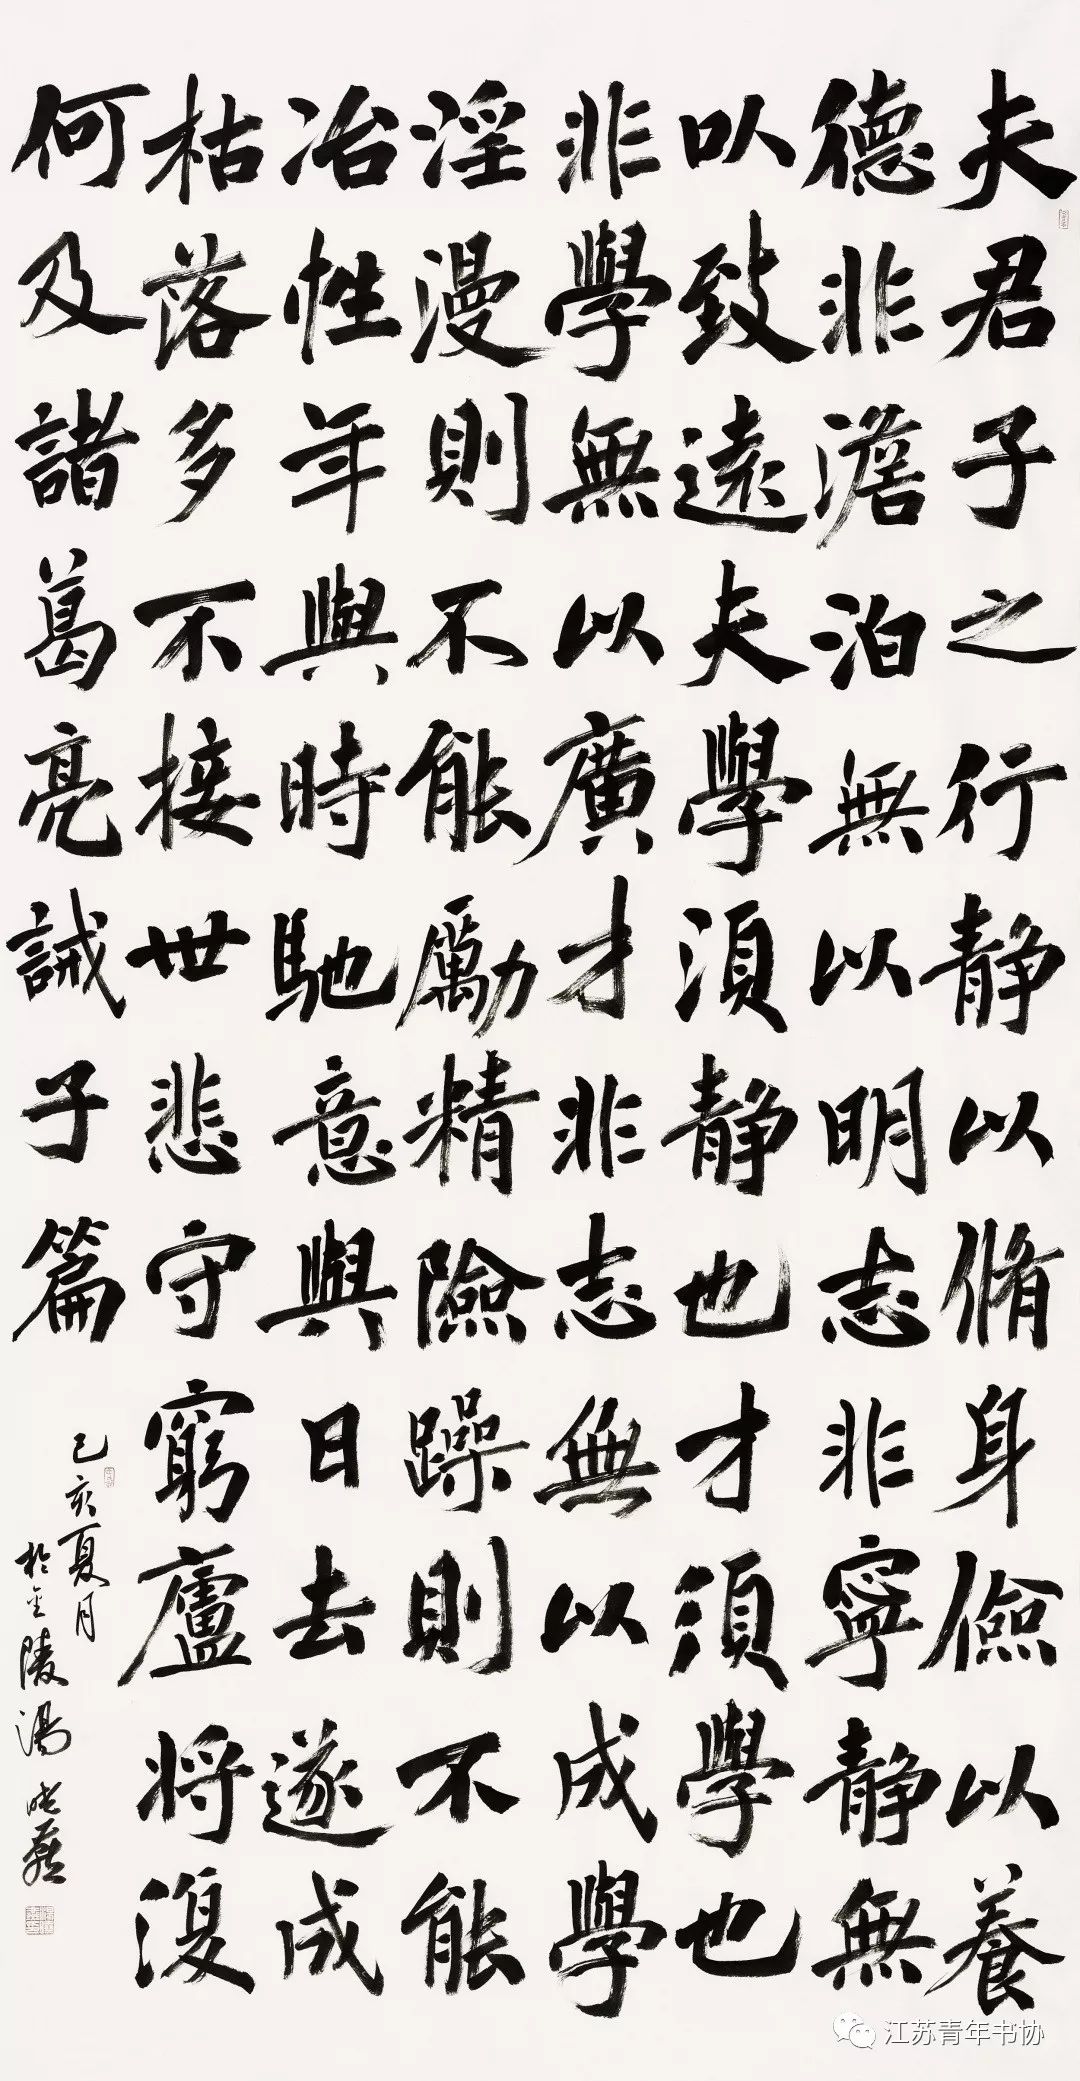 夫君子之行静以脩身儉以養
德非澹泊無以明志非寧静無
以致遠夫學須静也才須學也
非學無以廣才非志無以成學
淫漫則不能勵精險躁則不能
冶性年與時馳意與日去遂成
枯落多不接世悲守窮廬将復
何及諸葛亮誡子篇
己亥夏月
於金陵湯
江苏青年书协